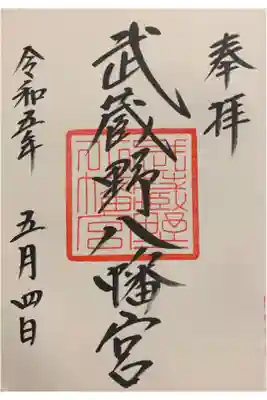 奉拝
武蔵野八幡宮
武蔵野八幡宮
令和五年 五月四日